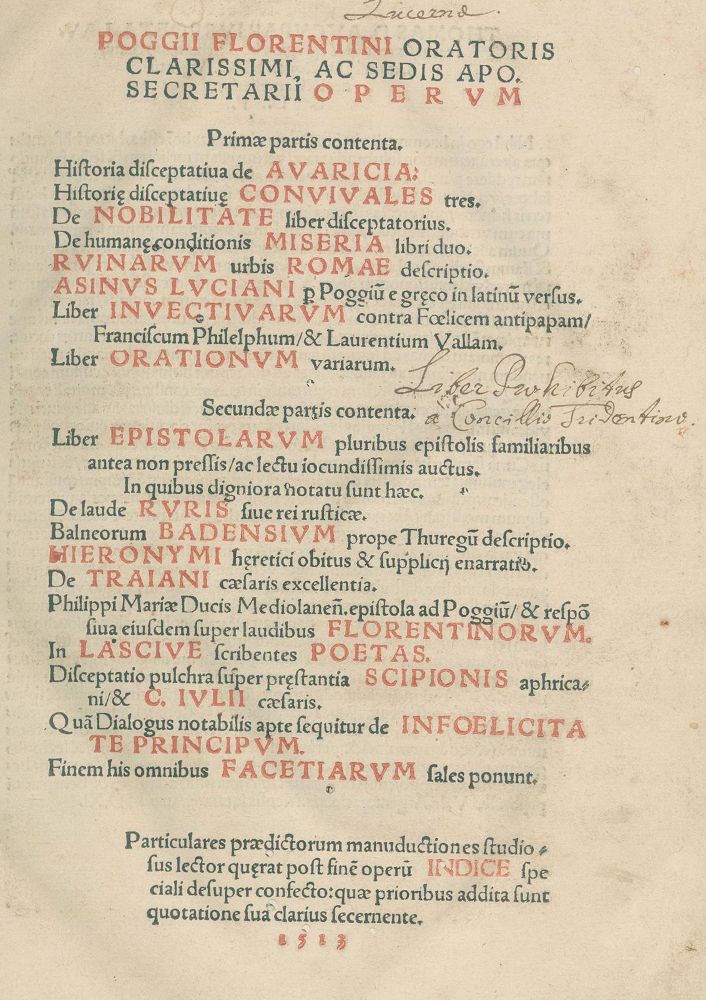 Lucernæ.
POGGII FLORENTINI ORATORIS
CLARISSIMI, AC SEDIS APO.
SECRETARII OPERVM
Primæ partis contenta.
Hiſtoria diſceptatiua de AVARICIA:
Hiſtorię diſceptatiuę CONVIVALES tres.
De NOBILITATE liber diſceptatorius.
De humanę conditionis MISERIA libri duo.
RVINARVM urbis ROMAE deſcriptio.
ASINVS LVCIANI ꝑ Poggiū e gręco in latinū verſus.
Liber INVECTIVARVM contra Fœlicem antipapam/
Franciſcum Philelphum/& Laurentium Vallam.
Liber ORATIONVM variarum.
Liber Prohibitus
a Concillio Tridentino.
Secundæ partis contenta.
Liber EPISTOLARVM pluribus epiſtolis familiaribus
antea non preſſis/ac lectu iocundiſſimis auctus.
In quibus digniora notatu ſunt hæc.
De laude RVRIS ſiue rei ruſticæ.
Balneorum BADENSIVM prope Thuregū deſcriptio.
HIERONYMI hęretici obitus & ſupplicij enarratio.
De TRAIANI cæſaris excellentia.
Philippi Mariæ Ducis Mediolaneñ. epiſtola ad Poggiū/& reſpō
ſiua eiuſdem ſuper laudibus FLORENTINORVM.
In LASCIVE ſcribentes POETAS.
Diſceptatio pulchra ſuper pręſtantia SCIPIONIS aphrica⸗
ni/& C. IVLII cæſaris.
Quā Dialogus notabilis apte ſequitur de INFOELICITA
TE PRINCIPVM.
Finem his omnibus FACETIARVM ſales ponunt.
Particulares prædictorum manuductiones ſtudio⸗
ſus lector quęrat poſt finē operū INDICE ſpe
ciali deſuper confecto: quæ prioribus addita ſunt
quotatione ſua clarius ſecernente.
1513